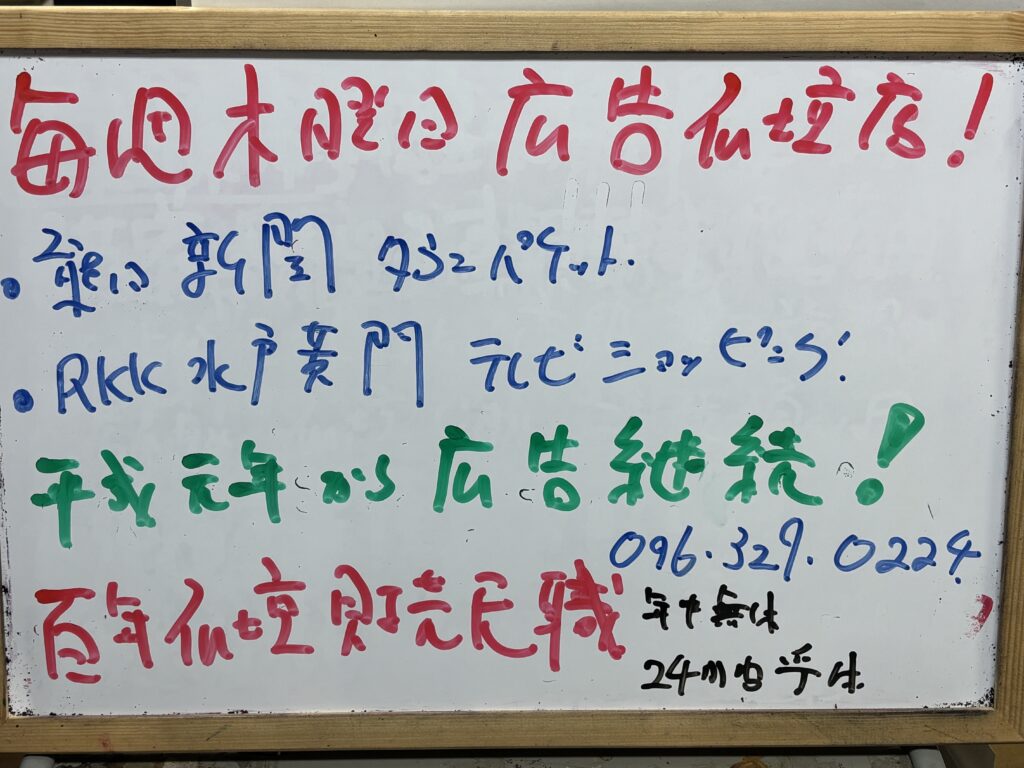 毎週木曜日 広告仏壇店!
・熊日 新聞 タシニパケット.
・RKK 水戸黄門 テレビショッピング!
平成元年から 広告継続!
096.329.0224
百年仏壇 
年中無休
24